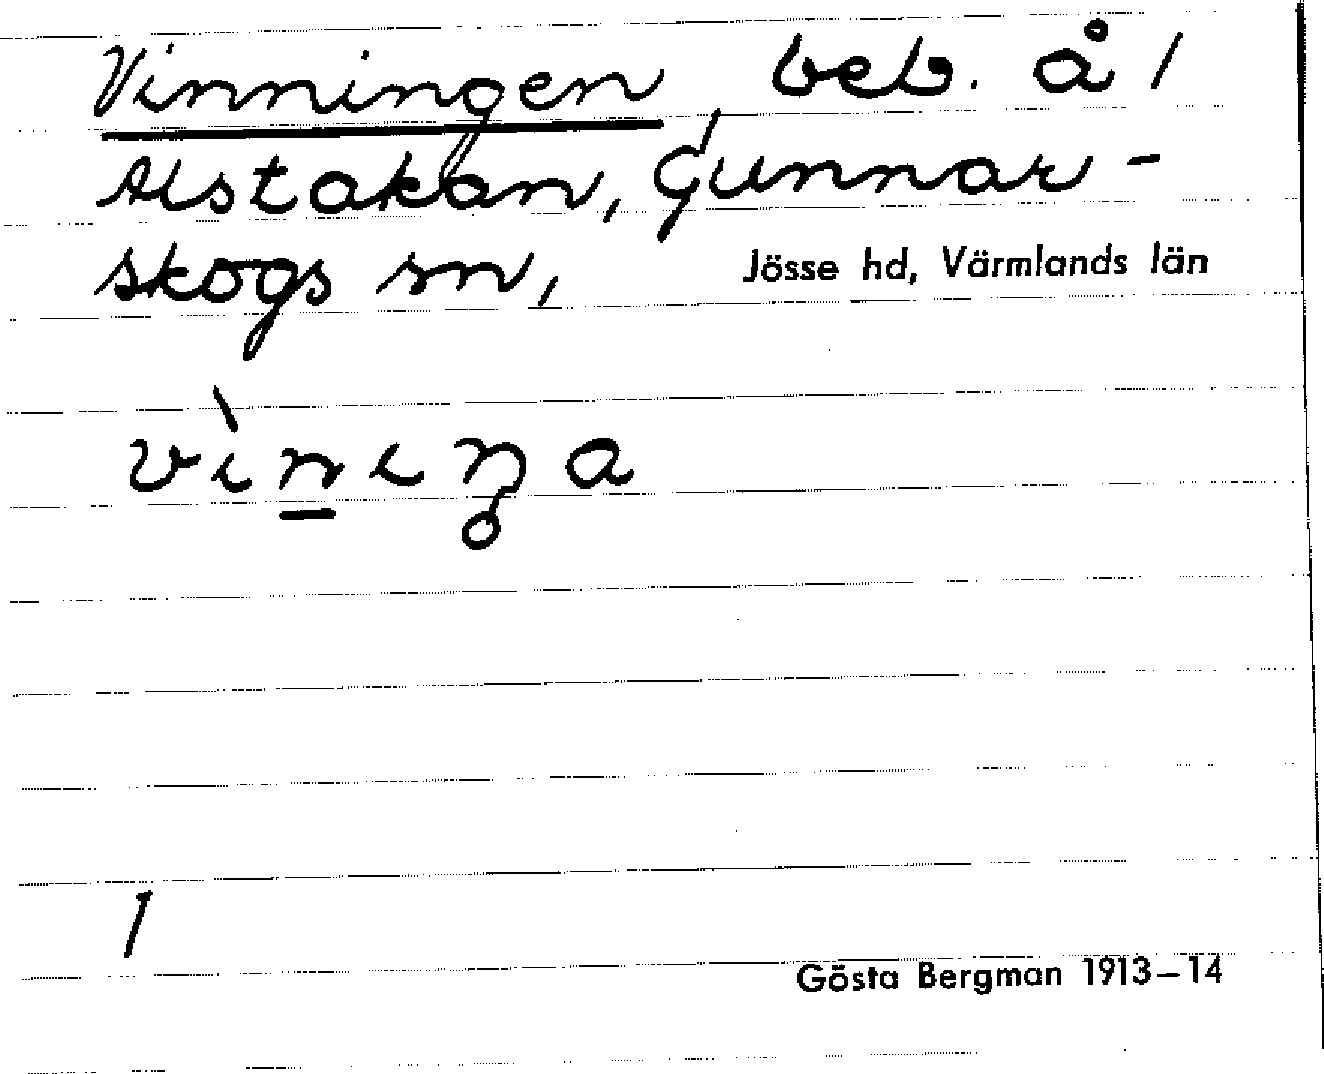 Vinningen beb. å 1
Alstakan, Gunnar-
skogs sn, Jösse hd, Värmlands län
vìn̲iŋa
1
Gösta Bergman 1913–14